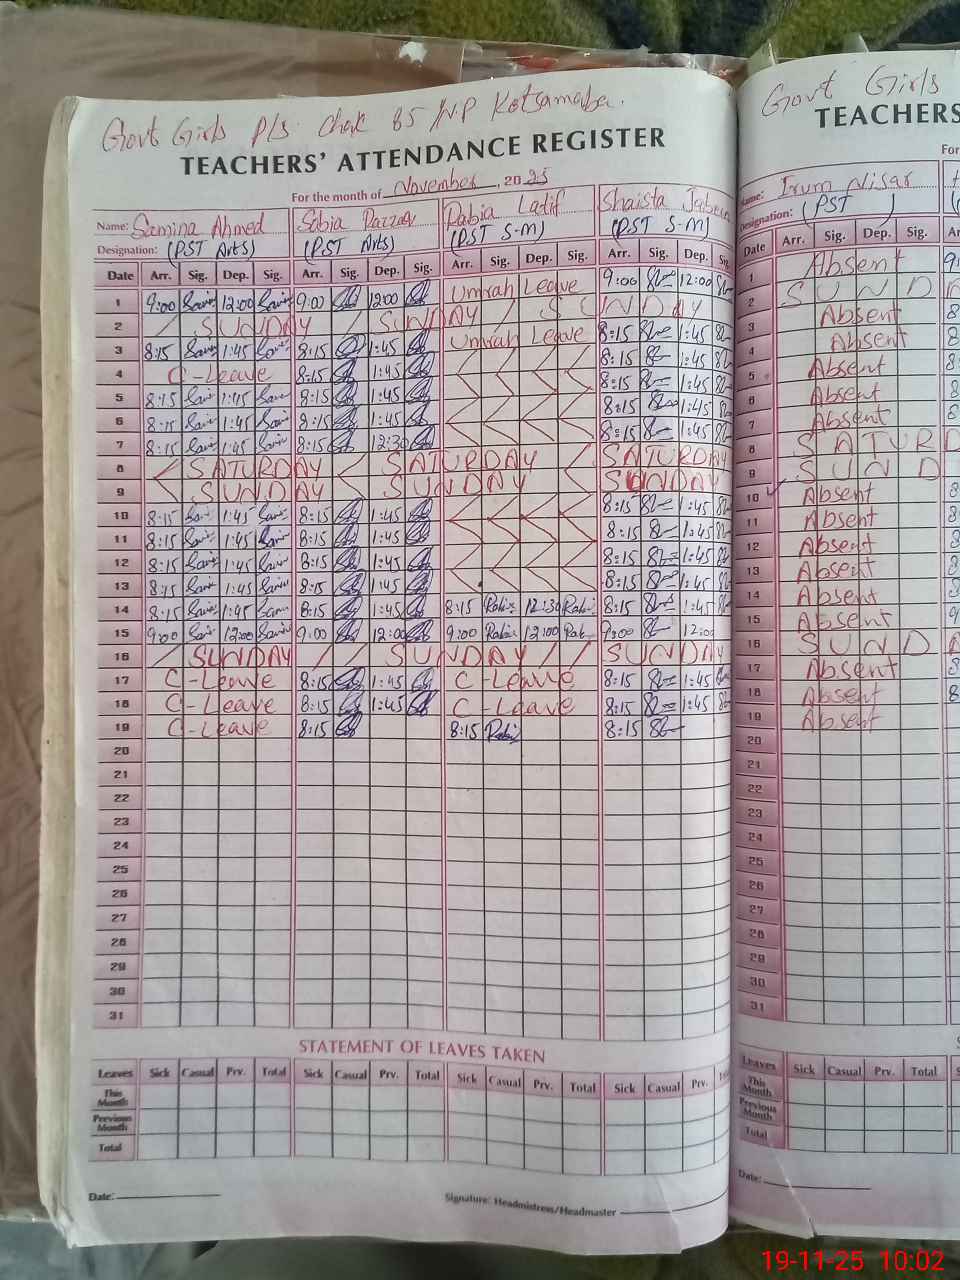 Govt Girls P/s. Chak 85 N.P Kotsamaba.
TEACHERS' ATTENDANCE REGISTER
For the month of November, 2025
Name: Samina Ahmed Sobia Razzaq Rabia Latif Shaista Jabeen
Designation: (PST Arts) (PST Arts) (PST S-M) (PST S-M)
Date Arr. Sig. Dep. Sig. Arr. Sig. Dep. Sig. Arr. Sig. Dep. Sig. Arr. Sig. Dep. Sig.
1 9:00 12:00 9:00 12:00 Umrah Leave 9:00 12:00
2 SUNDAY SUNDAY SUNDAY
3 8:15 1:45 8:15 1:45 Umrah Leave 8:15 1:45
4 C-Leave 8:15 1:45 8:15 1:45
5 8:15 1:45 8:15 1:45 8:15 1:45
6 8:15 1:45 8:15 1:45 8:15 1:45
7 8:15 1:45 8:15 12:30 8:15 1:45
8 SATURDAY SATURDAY SATURDAY
9 SUNDAY SUNDAY SUNDAY
10 8:15 1:45 8:15 1:45 8:15 1:45
11 8:15 1:45 8:15 1:45 8:15 1:45
12 8:15 1:45 8:15 1:45 8:15 1:45
13 8:15 1:45 8:15 1:45 8:15 1:45
14 8:15 1:45 8:15 1:45 8:15 12:30 8:15 1:45
15 9:00 12:00 9:00 12:00 9:00 12:00 9:00 12:00
16 SUNDAY SUNDAY SUNDAY
17 C-Leave 8:15 1:45 C-Leave 8:15 1:45
18 C-Leave 8:15 1:45 C-Leave 8:15 1:45
19 C-Leave 8:15 8:15 8:15
20
21
22
23
24
25
26
27
28
29
30
31
STATEMENT OF LEAVES TAKEN
Leaves Sick Casual Prv. Total Sick Casual Prv. Total Sick Casual Prv. Total Sick Casual Prv.
This Month
Previous Month
Total
Date:
Signature: Headmistress/Headmaster
Govt Girls
TEACHERS
For
Name: Irum Nisar
Designation: (PST )
Date Arr. Sig. Dep. Sig.
1 Absent
2 SUND
3 Absent
4 Absent
5 Absent
6 Absent
7 Absent
8 SATURD
9 SUND
10 Absent
11 Absent
12 Absent
13 Absent
14 Absent
15 Absent
16 SUND
17 Absent
18 Absent
19 Absent
20
21
22
23
24
25
26
27
28
29
30
31
Leaves Sick Casual Prv. Total
This Month
Previous Month
Total
Date:
19-11-25 10:02